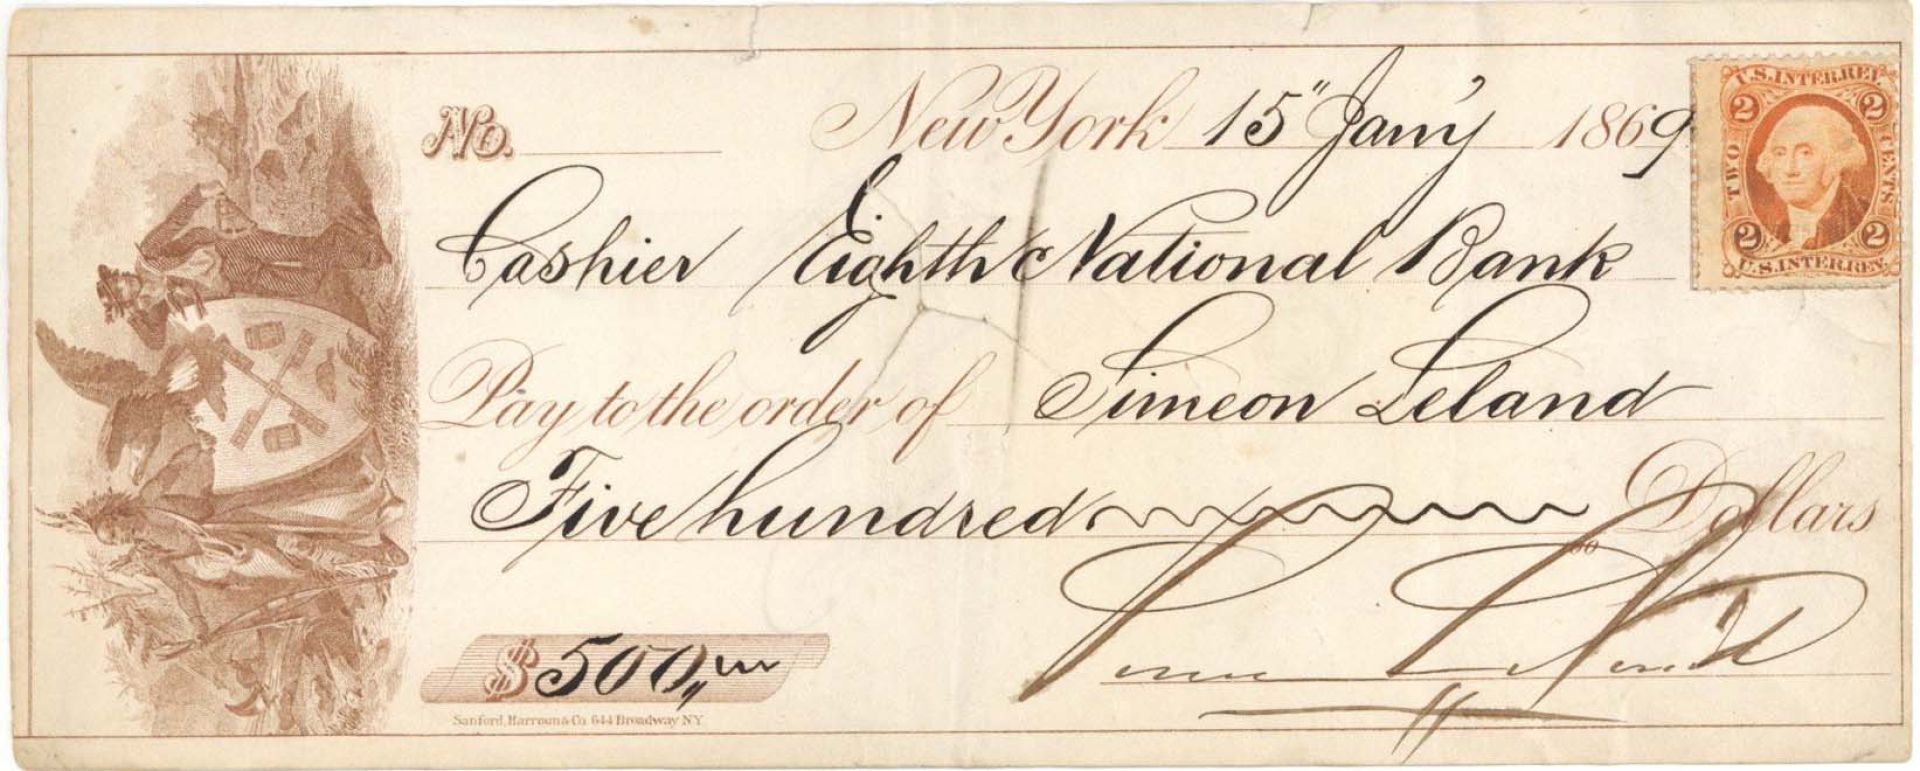 No. New York 15" Jany 1869
U.S. INTER. REV.
2 2
TWO CENTS
2 2
U.S. INTER. REV.
Cashier Eighth National Bank
Pay to the order of Simeon Leland
Five hundred Dollars
$500,,
Sanford, Harroun & Co. 644 Broadway NY.